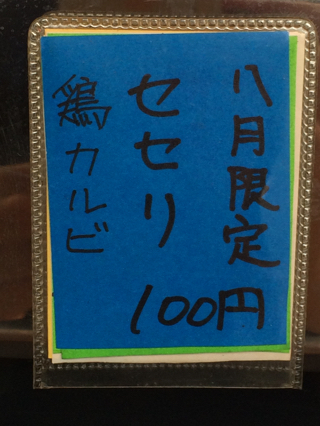 八月限定
セセリ
鶏カルビ
100円